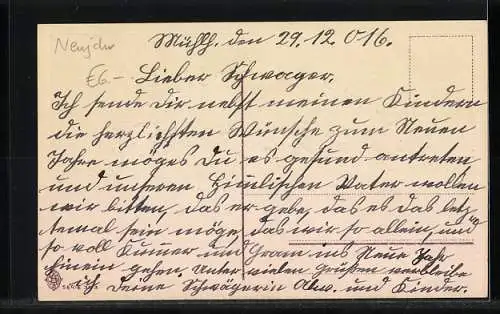 Neujahr
Mühlh. den 29.12.016.
€6.-
Lieber Schwager.
Ich sende dir nebst meinen Kindern
die herzlichsten Wünsche zum Neuen
Jahre möges Du es gesund antreten,
und unseren Himlischen Vater wollen
wir bitten, das er gebe, das es das letz
temal sein möge, das wir so allein, und
so voll Kumer und Gram ins Neue Jahr
hinein gehen, Unter vielen Grüßen verbleibe
ich deine Schwägerin Abw. und Kinder.